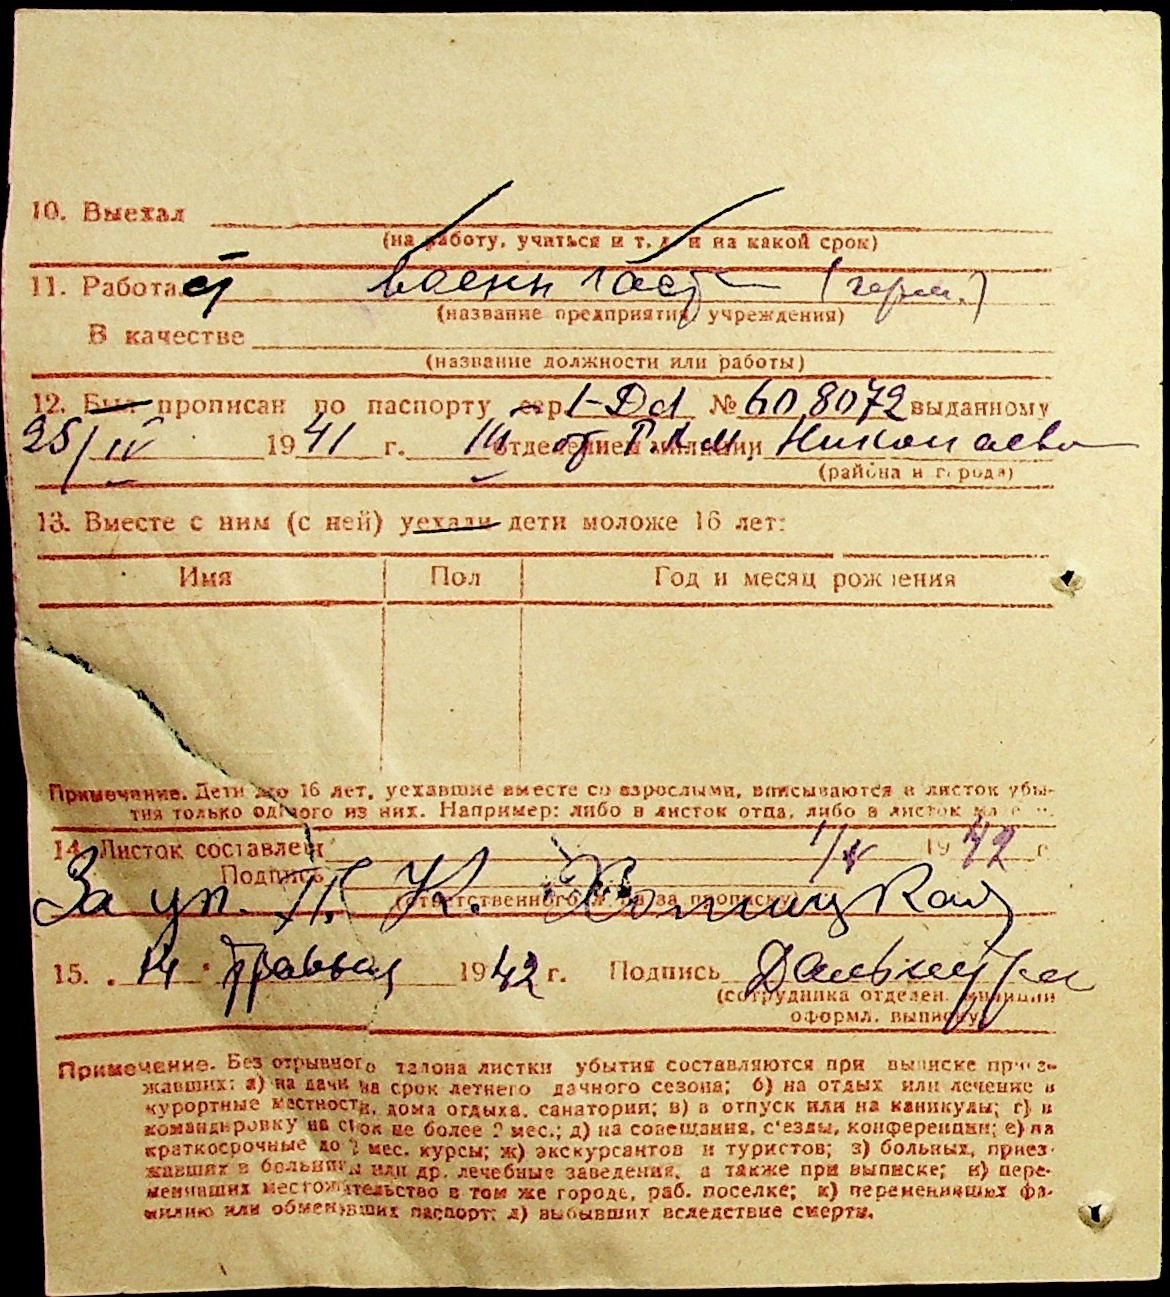 10. Выехал
(на работу, учиться и т. д. и на какой срок)
11. Работает военн част (герм.)
(название предприятия, учреждения)
В качестве
(название должности или работы)
12. Был прописан по паспорту сер. № 608072 выданному
25/IV 1941 г. III отделением милиции Николаева
(района и города)
13. Вместе с ним (с ней) уехали дети моложе 16 лет:
Имя Пол Год и месяц рождения
Примечание. Дети до 16 лет, уехавшие вместе со взрослыми, вписываются в листок убы-
тия только одного из них. Например: либо в листок отца, либо в листок
14. Листок составлен 1/V 1942 г.
Подпись
(ответственного за прописку)
За уп. К.
15. 14 травня 1942 г. Подпись
(сотрудника отделен. милиции
оформл. выписку)
Примечание. Без отрывного талона листки убытия составляются при выписке приез-
жавших: а) на дачи на срок летнего дачного сезона; б) на отдых или лечение в
курортные местности, дома отдыха, санатории; в) в отпуск или на каникулы; г) в
командировку на срок не более 2 мес.; д) на совещания, с'езды, конференции; е) на
краткосрочные до 2 мес. курсы; ж) экскурсантов и туристов; з) больных, приез-
жавших в больницы или др. лечебные заведения, а также при выписке; и) пере-
менивших местожительство в том же городе, раб. поселке; к) переменивших фа-
милию или обменявших паспорт; л) выбывших вследствие смерти.